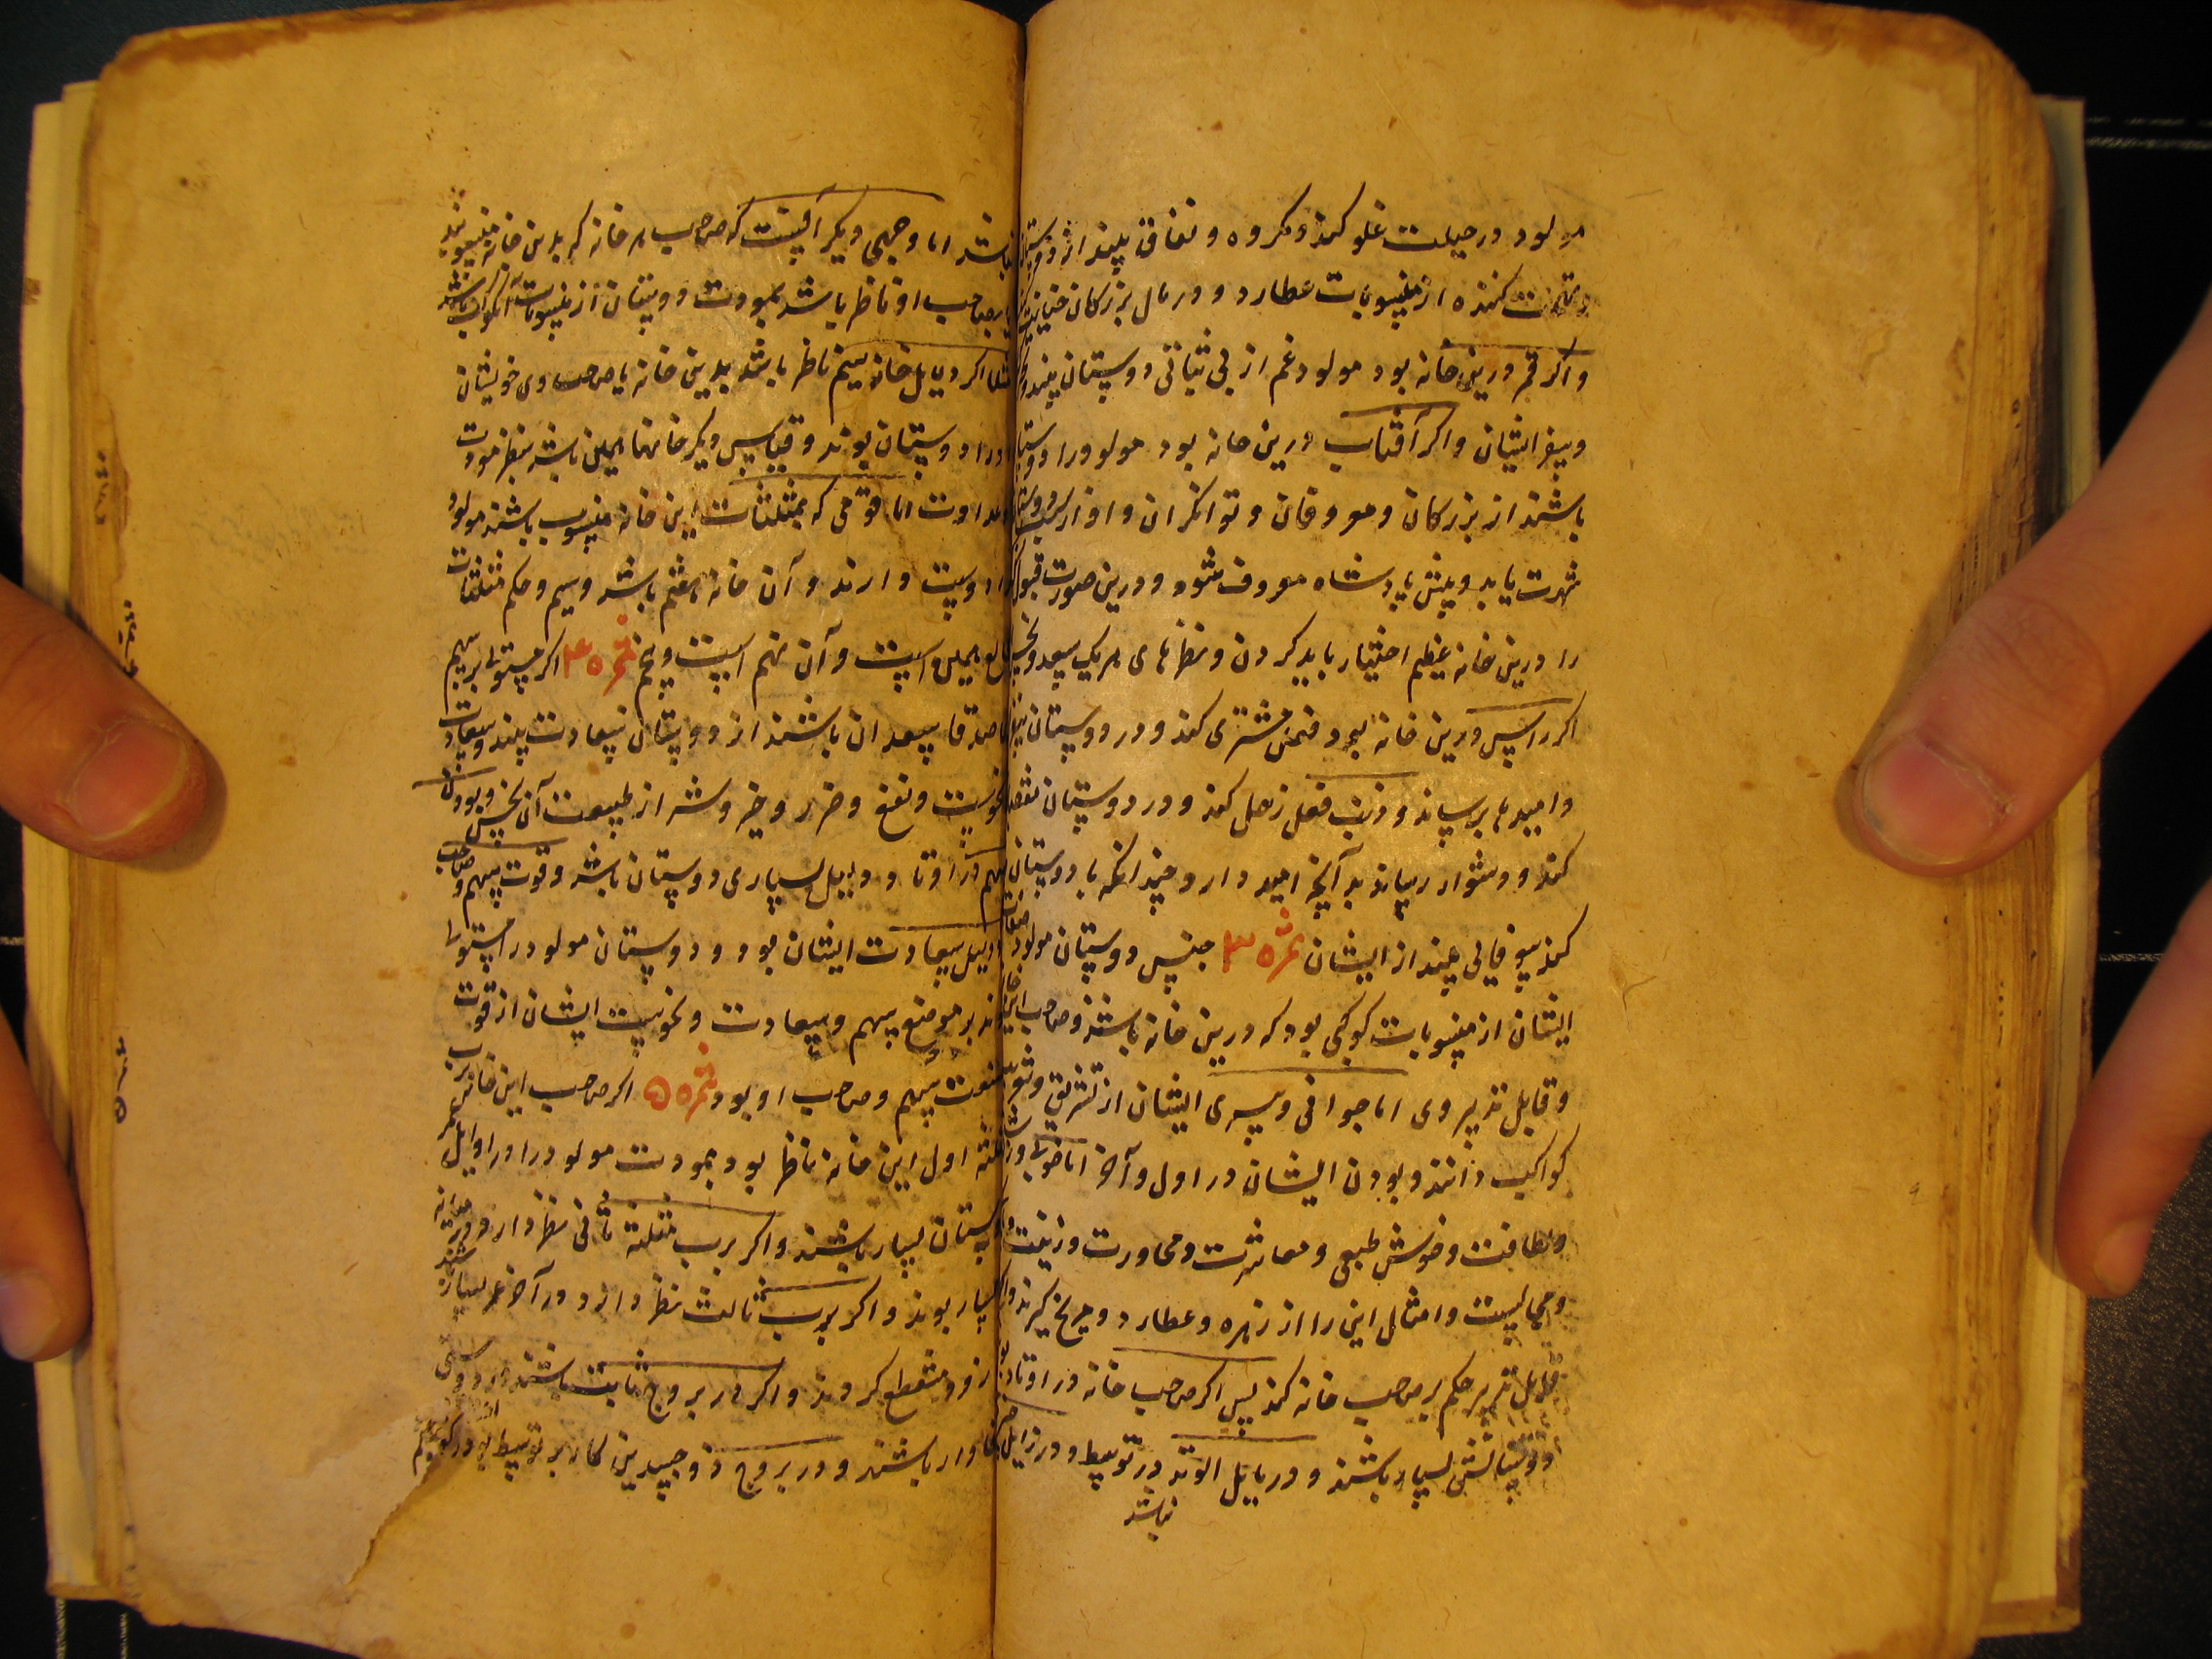 مولود در حیلت غلو کند و مکروه و نفاق بیند از دوستان
و تهمت کننده از منسوبات عطارد و در مال بزرکان خیانت
و اکر قمر درین خانه بود مولود غم از بی ثباتی دوستان بیند
و بیفر ایشان و اکر آفتاب درین خانه بود مولود را دوستان
باشند از بزرکان و معروفان و توانکران و او از دوستان
شهرت یابد و پیش پادشاه معروف شود و درین صورت قبول
را درین خانه عظیم اختیار باید کردن و نظرهای هر یک سعد و نحس
اکر راس درین خانه بود فعل مشتری کند و در دوستان
و امیدها برساند و ذنب فعل زحل کند و در دوستان نقصان
کند و دشوار رساند بدآنچه امید دارد چندانکه با دوستان
کند بیوفایی بیند از ایشان ثمره ۳ جنس دوستان مولود
ایشان از منسوبات کوکبی بود که درین خانه باشد و صاحب این خانه
و قابل تدبیر وی اما جوانی و پیری ایشان از تشریق و تغریب
کواکب دانند و بودن ایشان در اول و آخر اما خوبی
و لطافت و خوش طبعی و معاشرت و محاورت و زینت
و مجالست و امثال این را از زهره و عطارد و مریخ کیرند
قابل تدبیر حکم بر صاحب خانه کند پس اکر صاحب خانه در اوتاد بود
دوستانش بسیار باشند و در مایل الوتد در توسط و در زایل
نباشد
باشد اما وجهی دیکر آنست که صاحب هر خانه که بدین خانه منسوب باشد
یا بصاحب او ناظر باشد بمودت دوستان از منسوبات آن کوکب باشند
مثلا اکر دلیل خانه سیم ناظر باشد بدین خانه یا صاحب وی خویشان
او را دوستان بوند و قیاس دیکر خانها همین باشد بنظر مودت
و عداوت اما قومی که بمثلثات این خانه منسوب باشند مولود
را دوست دارند و آن خانه هفتم باشد و سیم و حکم مثلثات
طالع همین است و آن نهم است و پنجم ثمره ۴ اکر مستولی بر سهم
اصدقا سعدان باشند از دوستان سعادت بیند و سعادت
و نحوست و نفع و ضرر و خیر و شر از طبیعت آن نحس و بودن
سهم در اوتاد دلیل بسیاری دوستان باشد و قوت سهم و صاحب
دلیل سعادت ایشان بود و دوستان مولود را مستولی
بر موضع سهم و سعادت و نحوست ایشان از قوت
و ضعف سهم و صاحب او بود ثمره ۵ اکر صاحب این خانه برب
مثلثه اول این خانه ناظر بود بمودت مولود را در اوایل عمر
دوستان بسیار باشند و اکر برب مثلثه ثانی نظر دارد در میانه
بسیار بوند و اکر برب ثالث نظر دارد در آخر عمر بسیار باشند
زود منقطع کردند و اکر در بروج ثابت باشند در دوستی
وفادار باشند و در بروج ذوجسدین کار بر توسط بود